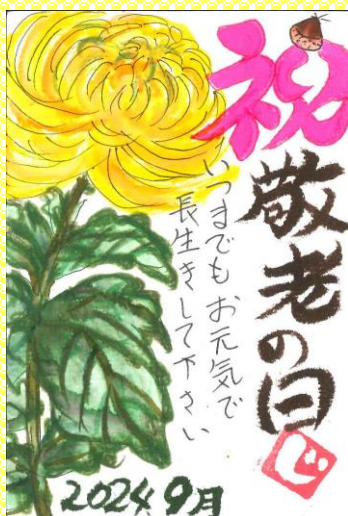 祝
敬老の日
いつまでもお元気で
長生きして下さい
2024 9月
じ